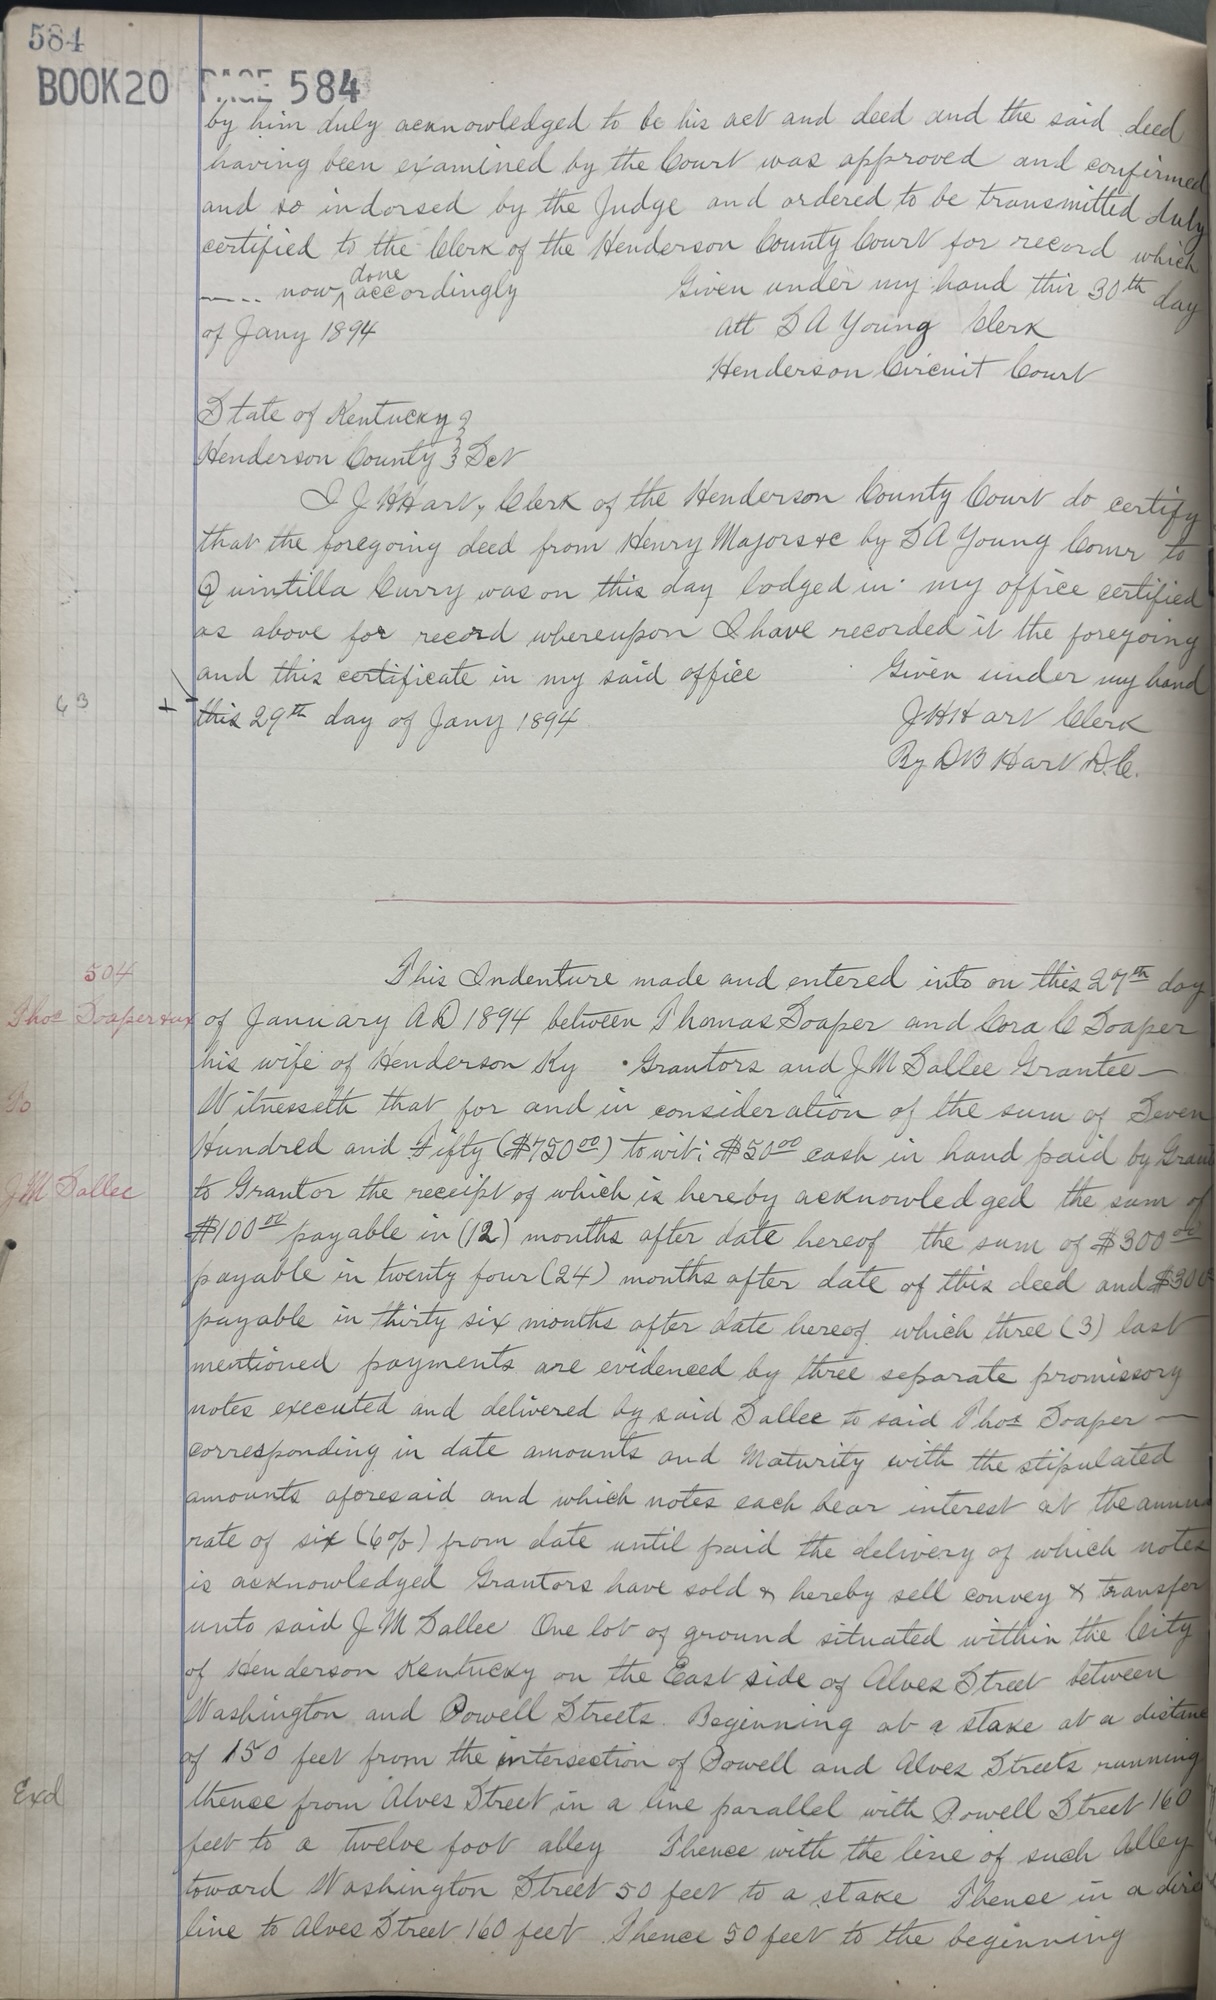 584
BOOK 20 PAGE 584
by him duly acknowledged to be his act and deed and the said deed
having been examined by the Court was approved and confirmed
and so indorsed by the Judge and ordered to be transmitted duly
certified to the Clerk of the Henderson County Court for record which
done
now, accordingly Given under my hand this 30th day
of Jany 1894 att S A Young Clerk
Henderson Circuit Court
State of Kentucky }
Henderson County } Sct
I J H Hart, Clerk of the Henderson County Court do certify
that the foregoing deed from Henry Majors &c by S A Young Comr to
Quintilla Curry was on this day lodged in my office certified
as above for record whereupon I have recorded it the foregoing
and this certificate in my said office Given under my hand
this 29th day of Jany 1894 J H Hart Clerk
By D B Hart D.C.
504
This Indenture made and entered into on this 27th day
Thos Soaper & ux
of January A D 1894 between Thomas Soaper and Cora C Soaper
his wife of Henderson Ky Grantors and J M Sallee Grantee
To
Witnesseth that for and in consideration of the sum of Seven
Hundred and Fifty ($750 00) to wit: $50 00 cash in hand paid by
J M Sallee
to Grantor the receipt of which is hereby acknowledged the sum of
$100 00 payable in (12) months after date hereof the sum of $300 00
payable in twenty four (24) months after date of this deed and $300
payable in thirty six months after date hereof which three (3) last
mentioned payments are evidenced by three separate promissory
notes executed and delivered by said Sallee to said Thos Soaper
corresponding in date amounts and Maturity with the stipulated
amounts aforesaid and which notes each bear interest at the
rate of six (6%) from date until paid the delivery of which notes
is acknowledged Grantors have sold & hereby sell convey & transfer
unto said J M Sallee One lot of ground situated within the City
of Henderson Kentucky on the East side of Alves Street between
Washington and Powell Streets. Beginning at a stake at a
of 150 feet from the intersection of Powell and Alves Streets running
Exd
thence from Alves Street in a line parallel with Powell Street 160
feet to a twelve foot alley Thence with the line of such Alley
toward Washington Street 50 feet to a stake Thence in a
line to Alves Street 160 feet Thence 50 feet to the beginning